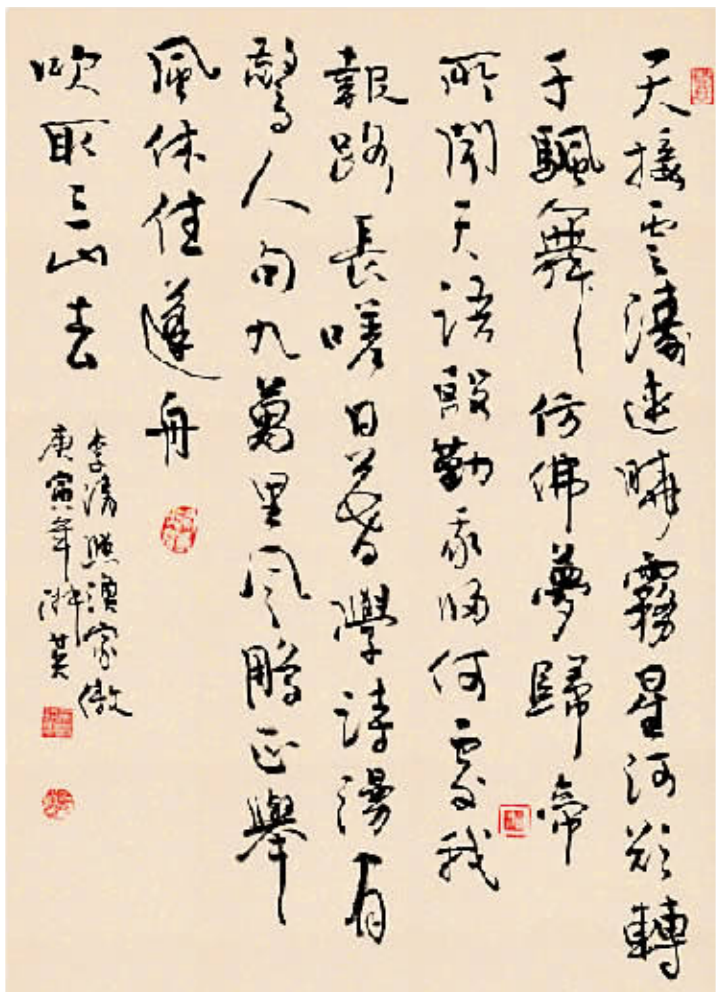 天接雲濤連曉霧星河欲轉
千颿舞仿佛夢歸帝
所聞天語殷勤我歸何處我
報路長嗟日暮學詩漫有
驚人句九萬里風鵬正舉
風休住蓬舟
吹取三山去
李清照漁家傲
庚寅年英